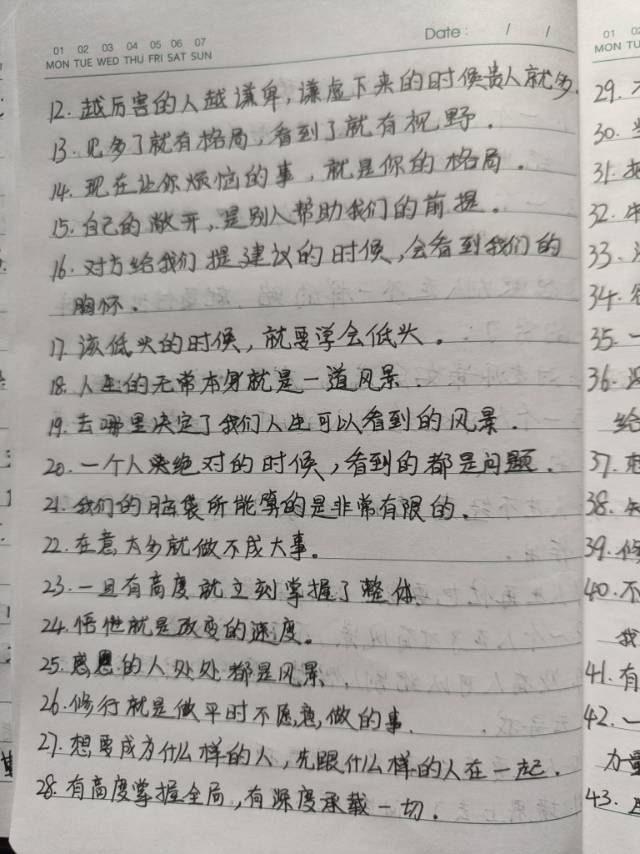 01 02 03 04 05 06 07
MON TUE WED THU FRI SAT SUN
Date: / /
12. 越厉害的人越谦卑,谦虚下来的时候贵人就多.
13. 见多了就有格局,看到了就有视野.
14. 现在让你烦恼的事,就是你的格局.
15. 自己的敞开,是别人帮助我们的前提.
16. 对方给我们提建议的时候,会看到我们的
胸怀.
17. 该低头的时候,就要学会低头.
18. 人生的无常本身就是一道风景.
19. 去哪里决定了我们人生可以看到的风景.
20. 一个人来绝对的时候,看到的都是问题.
21. 我们的脑袋所能算的是非常有限的.
22. 在意太多就做不成大事。
23. 一旦有高度就立刻掌握了整体.
24. 悟性就是改变的速度。
25. 感恩的人处处都是风景.
26. 修行就是做平时不愿意做的事.
27. 想要成为什么样的人,先跟什么样的人在一起.
28. 有高度掌握全局,有深度承载一切.
01
MON TU
29.
30.
31.
32.
33.
34.
35. 一
36.
给
37.
38.
39. 修
40. 不
我
41. 有
42. 一
力量
43.